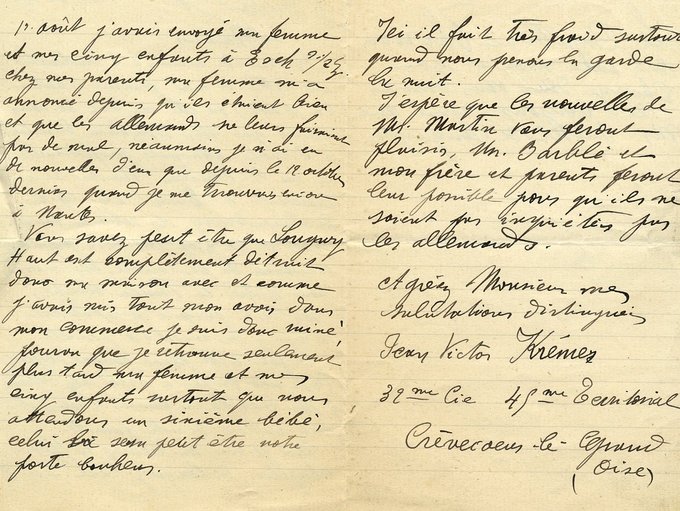 1er août j'avais envoyé ma femme
et mes cinq enfants à Esch s/Alz.
chez mes parents, ma femme m'a
annoncé depuis qu'ils étaient bien
et que les allemands ne leurs faisaient
pas de mal, néanmoins je n'ai eu
de nouvelles d'eux que depuis le 12 octobre
dernier quand je me trouvais encore
à Nantes.
Vous savez peut être que Longwy
Haut est complètement détruit
donc ma maison avec et comme
j'avais mis tout mon avoir dans
mon commerce je suis donc ruiné,
pourvu que je retrouve seulement
plus tard ma femme et mes
cinq enfants surtout que nous
attendons un sixième bébé,
celui sera petit être notre
porte bonheur.
Ici il fait très froid surtout
quand nous prenons la garde
la nuit.
J'espère que les nouvelles de
Mr. Martin vous feront
plaisir, Mr. Barblé et
mon frère et parents feront
leur possible pour qu'ils ne
soient pas inquiétés par
les allemands.
Agréez Monsieur mes
salutations distinguées
Jean Victor Krémer
32me Cie 45me Territorial
Crèvecoeur-le-Grand
(Oise)